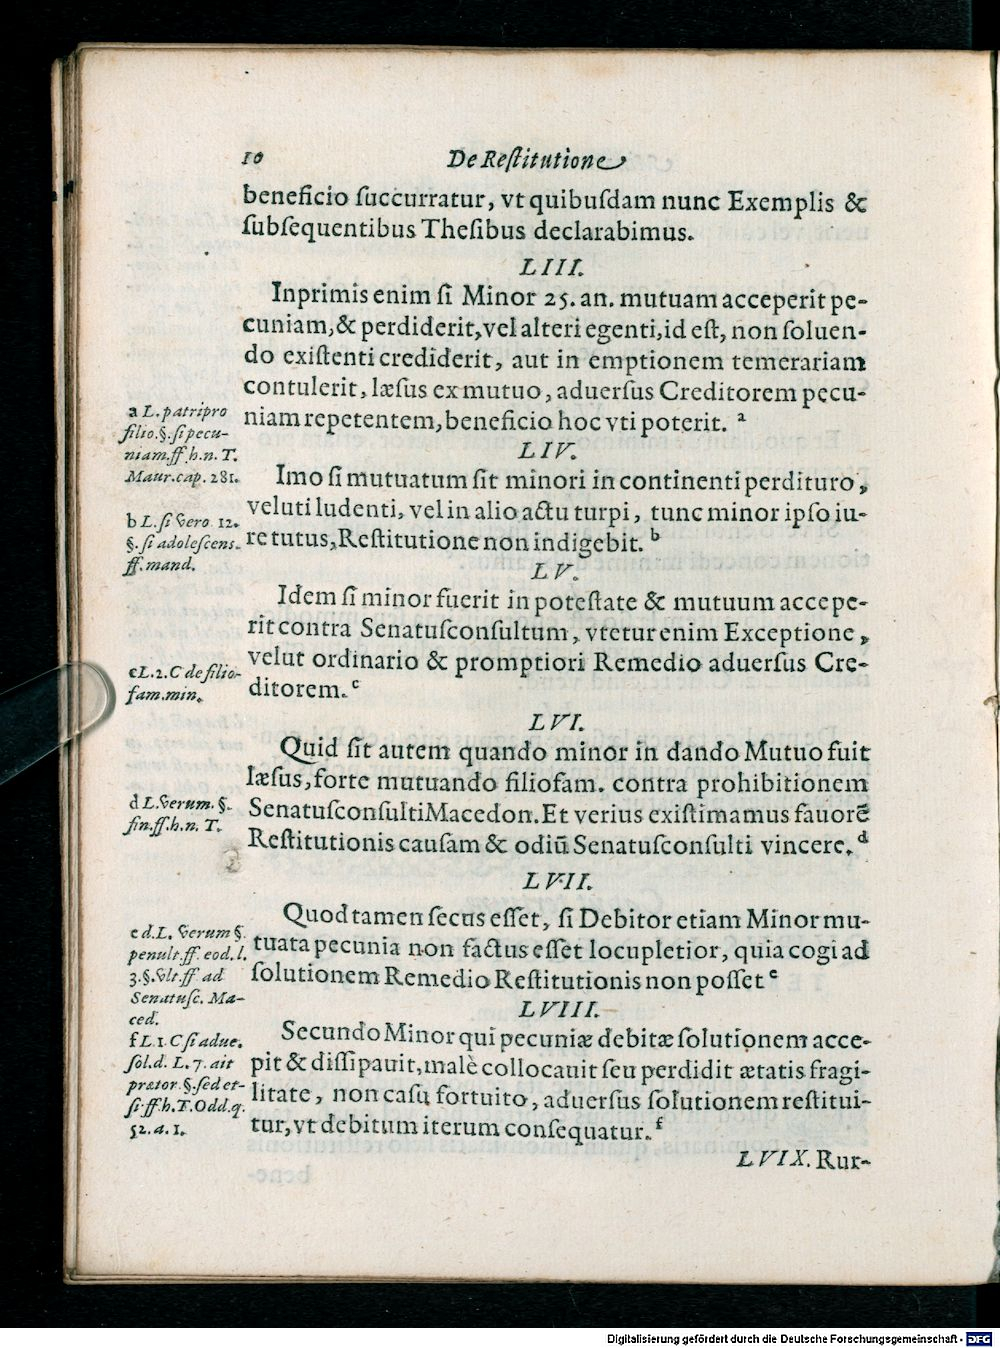 10 De Restitutione
beneficio succurratur, vt quibusdam nunc Exemplis &
subsequentibus Thesibus declarabimus.
LIII.
Inprimis enim si Minor 25. an. mutuam acceperit pe-
cuniam, & perdiderit, vel alteri egenti, id est, non soluen-
do existenti crediderit, aut in emptionem temerariam
contulerit, læsus ex mutuo, aduersus Creditorem pecu-
niam repetentem, beneficio hoc vti poterit. a
a L. patri pro
filio. §. si pecu-
niam. ff. h. n. T.
Maur. cap. 281.
LIV.
Imo si mutuatum sit minori in continenti perdituro,
veluti ludenti, vel in alio actu turpi, tunc minor ipso iu-
re tutus, Restitutione non indigebit. b
b L. si vero 12.
§. si adolescens.
ff. mand.
LV.
Idem si minor fuerit in potestate & mutuum accepe-
rit contra Senatusconsultum, vtetur enim Exceptione,
velut ordinario & promptiori Remedio aduersus Cre-
ditorem. c
c L. 2. C de filio-
fam. min.
LVI.
Quid sit autem quando minor in dando Mutuo fuit
læsus, forte mutuando filiofam. contra prohibitionem
Senatusconsulti Macedon. Et verius existimamus fauorē
Restitutionis causam & odiū Senatusconsulti vincere. d
d L. verum. §.
fin. ff. h. n. T.
LVII.
Quod tamen secus esset, si Debitor etiam Minor mu-
tuata pecunia non factus esset locupletior, quia cogi ad
solutionem Remedio Restitutionis non posset e
e d. L. verum §.
penult. ff. eod. l.
3. §. vlt. ff ad
Senatusc. Ma-
ced.
LVIII.
Secundo Minor qui pecuniæ debitæ solutionem acce-
pit & dissipauit, malè collocauit seu perdidit ætatis fragi-
litate, non casu fortuito, aduersus solutionem restitui-
tur, vt debitum iterum consequatur. f
f L. 1. C si adue.
sol. d. L. 7. ait
prætor. §. sed et-
si. ff. h. T. Odd. q.
52. a. 1.
LVIX. Rur-
Digitalisierung gefördert durch die Deutsche Forschungsgemeinschaft - DFG